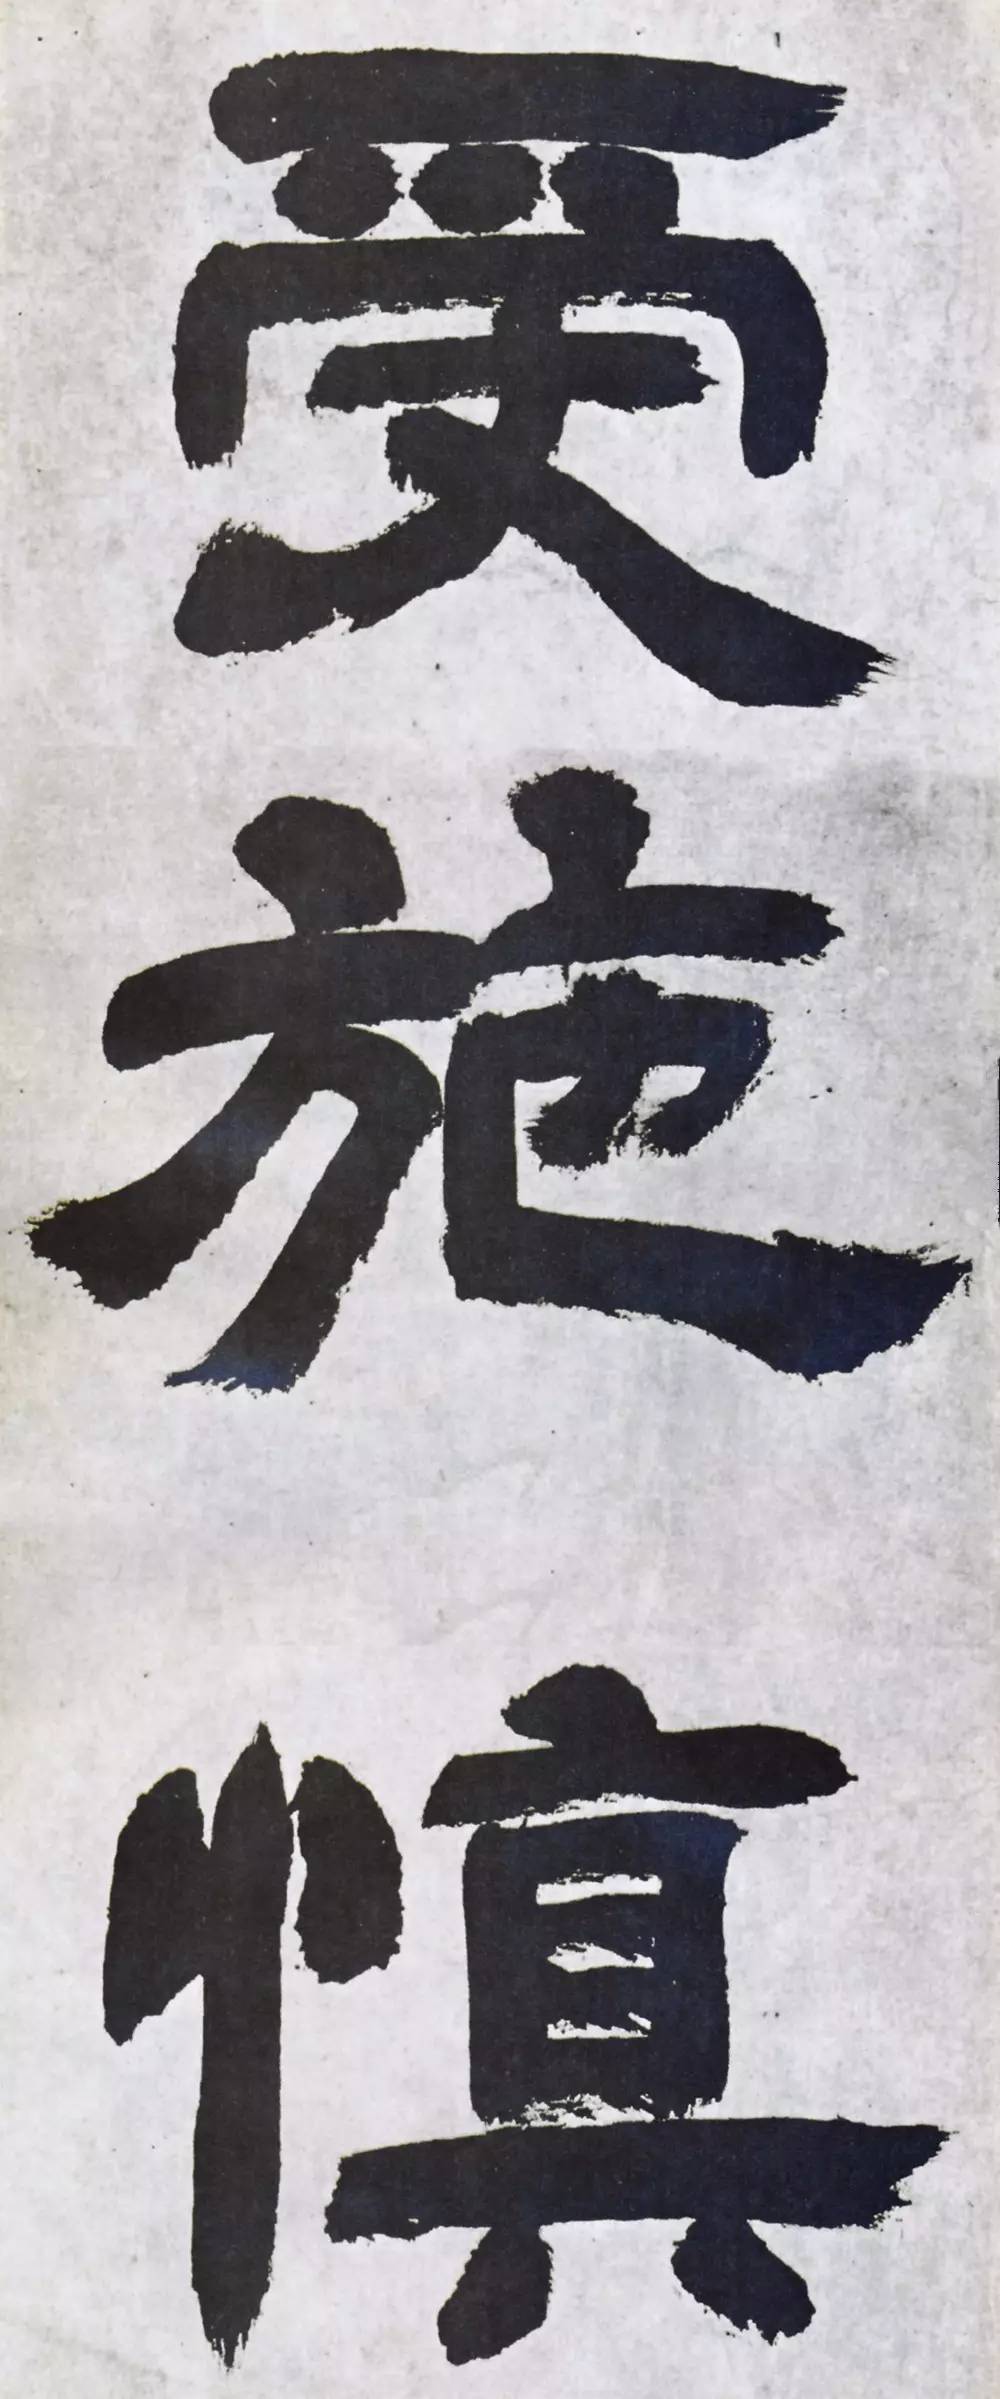 受施慎